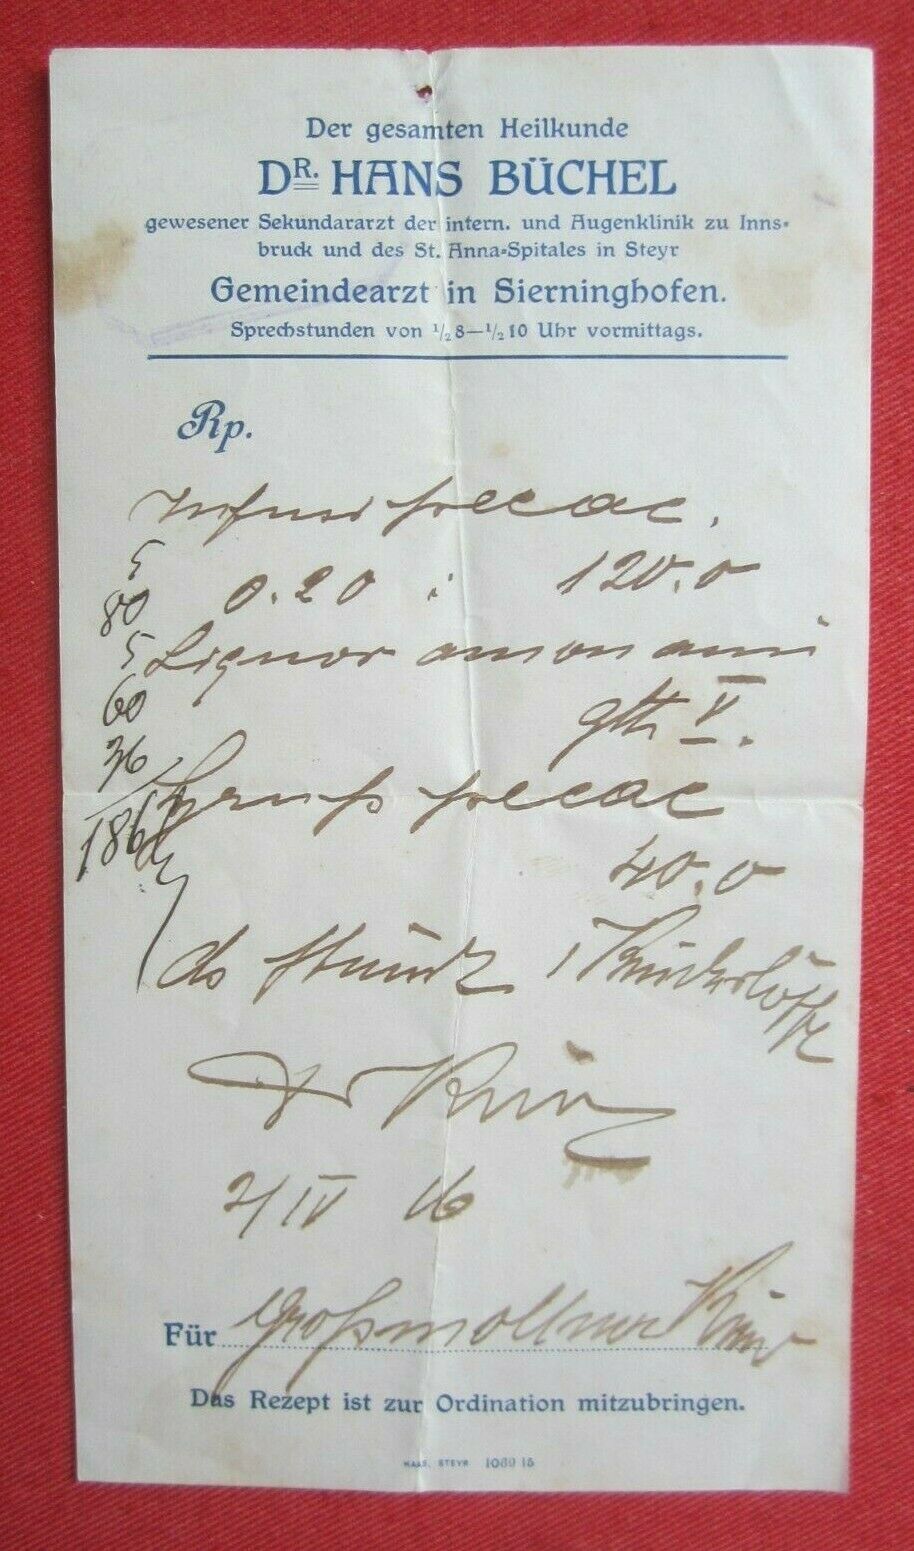 Der gesamten Heilkunde
DR. HANS BÜCHEL
gewesener Sekundararzt der intern. und Augenklinik zu Inns-
bruck und des St. Anna-Spitales in Steyr
Gemeindearzt in Sierninghofen.
Sprechstunden von 1/2 8—1/2 10 Uhr vormittags.
Rp.
Infus ipecac.
5
0.20 : 120.0
80
5 Liquor amon anis
60 gtt V.
36
Syrup ipecac
186
40.0
ds stündl 1 Kinderlöffl
Dr
2/IV 16
Für Großmollner
Das Rezept ist zur Ordination mitzubringen.
HAAS, STEYR 1069 15